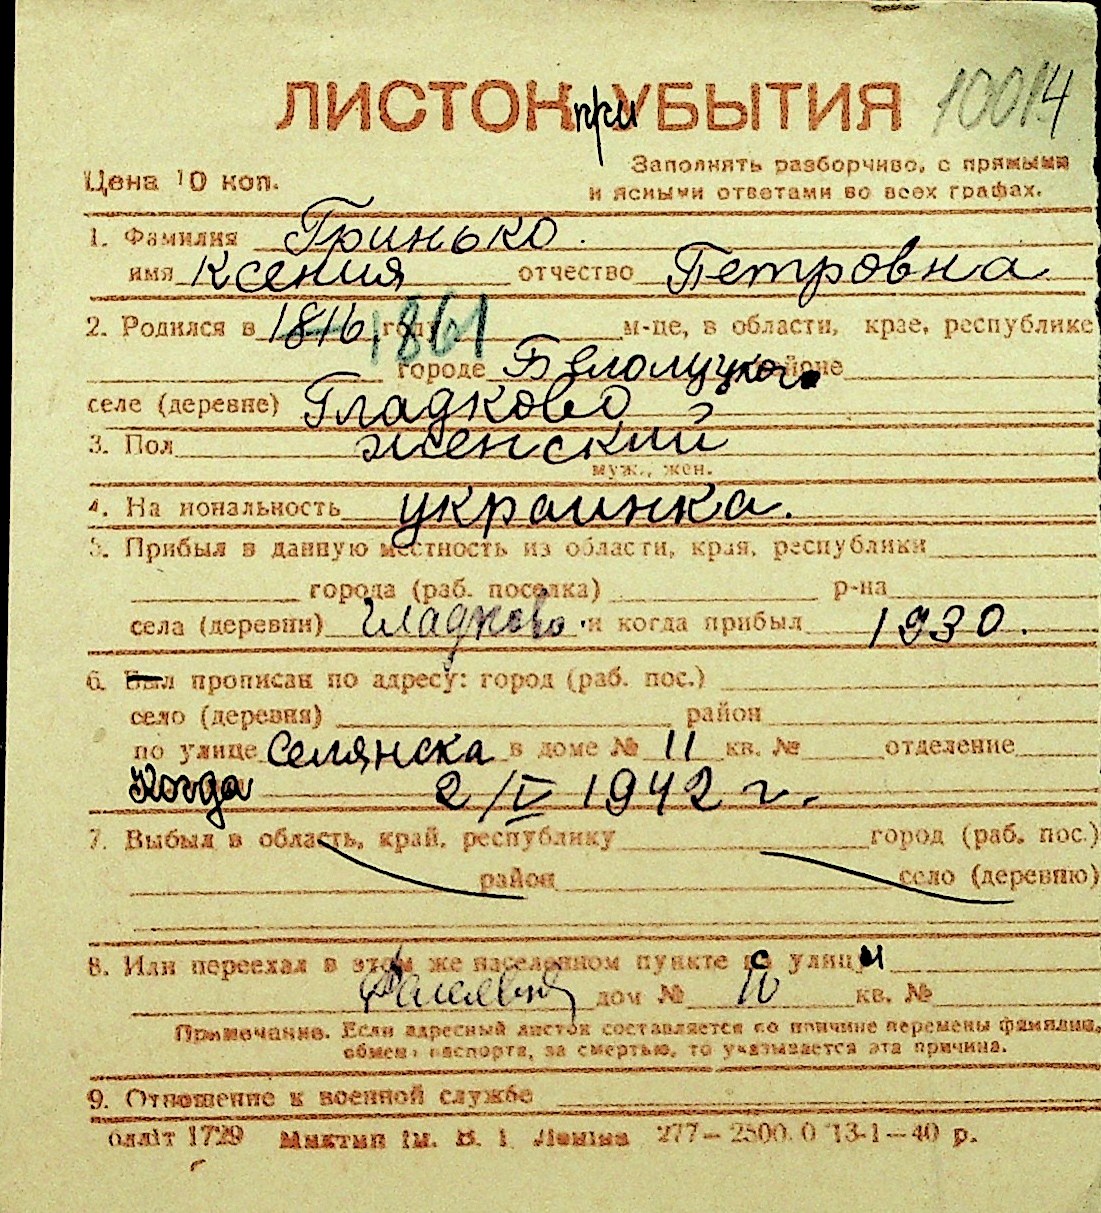 10014
ЛИСТОК при УБЫТИЯ
Заполнять разборчиво, с прямыми
Цена 10 коп.
и ясными ответами во всех графах.
1. Фамилия Гринько.
имя Ксения отчество Петровна
2. Родился в 1816 году 1861 м-це, в области, крае, республике
городе Белолуцкого районе
селе (деревне) Гладково
3. Пол женский
муж., жен.
4. Национальность украинка.
5. Прибыл в данную местность из области, края, республики
города (раб. поселка) р-на
села (деревни) Гладково и когда прибыл 1930.
6. Был прописан по адресу: город (раб. пос.)
село (деревня) район
по улице Селянска в доме № 11 кв. № отделение
Когда 2/V 1942 г.
7. Выбыл в область, край, республику город (раб. пос.)
район село (деревню)
8. Или переехал в этом же населенном пункте с улицы
дом № 10 кв. №
Примечание. Если адресный листок составляется по причине перемены фамилии,
обмена паспорта, за смертью, то указывается эта причина.
9. Отношение к военной службе
1729 им. В. І. Леніна 277—2500.0 13-1—40 р.